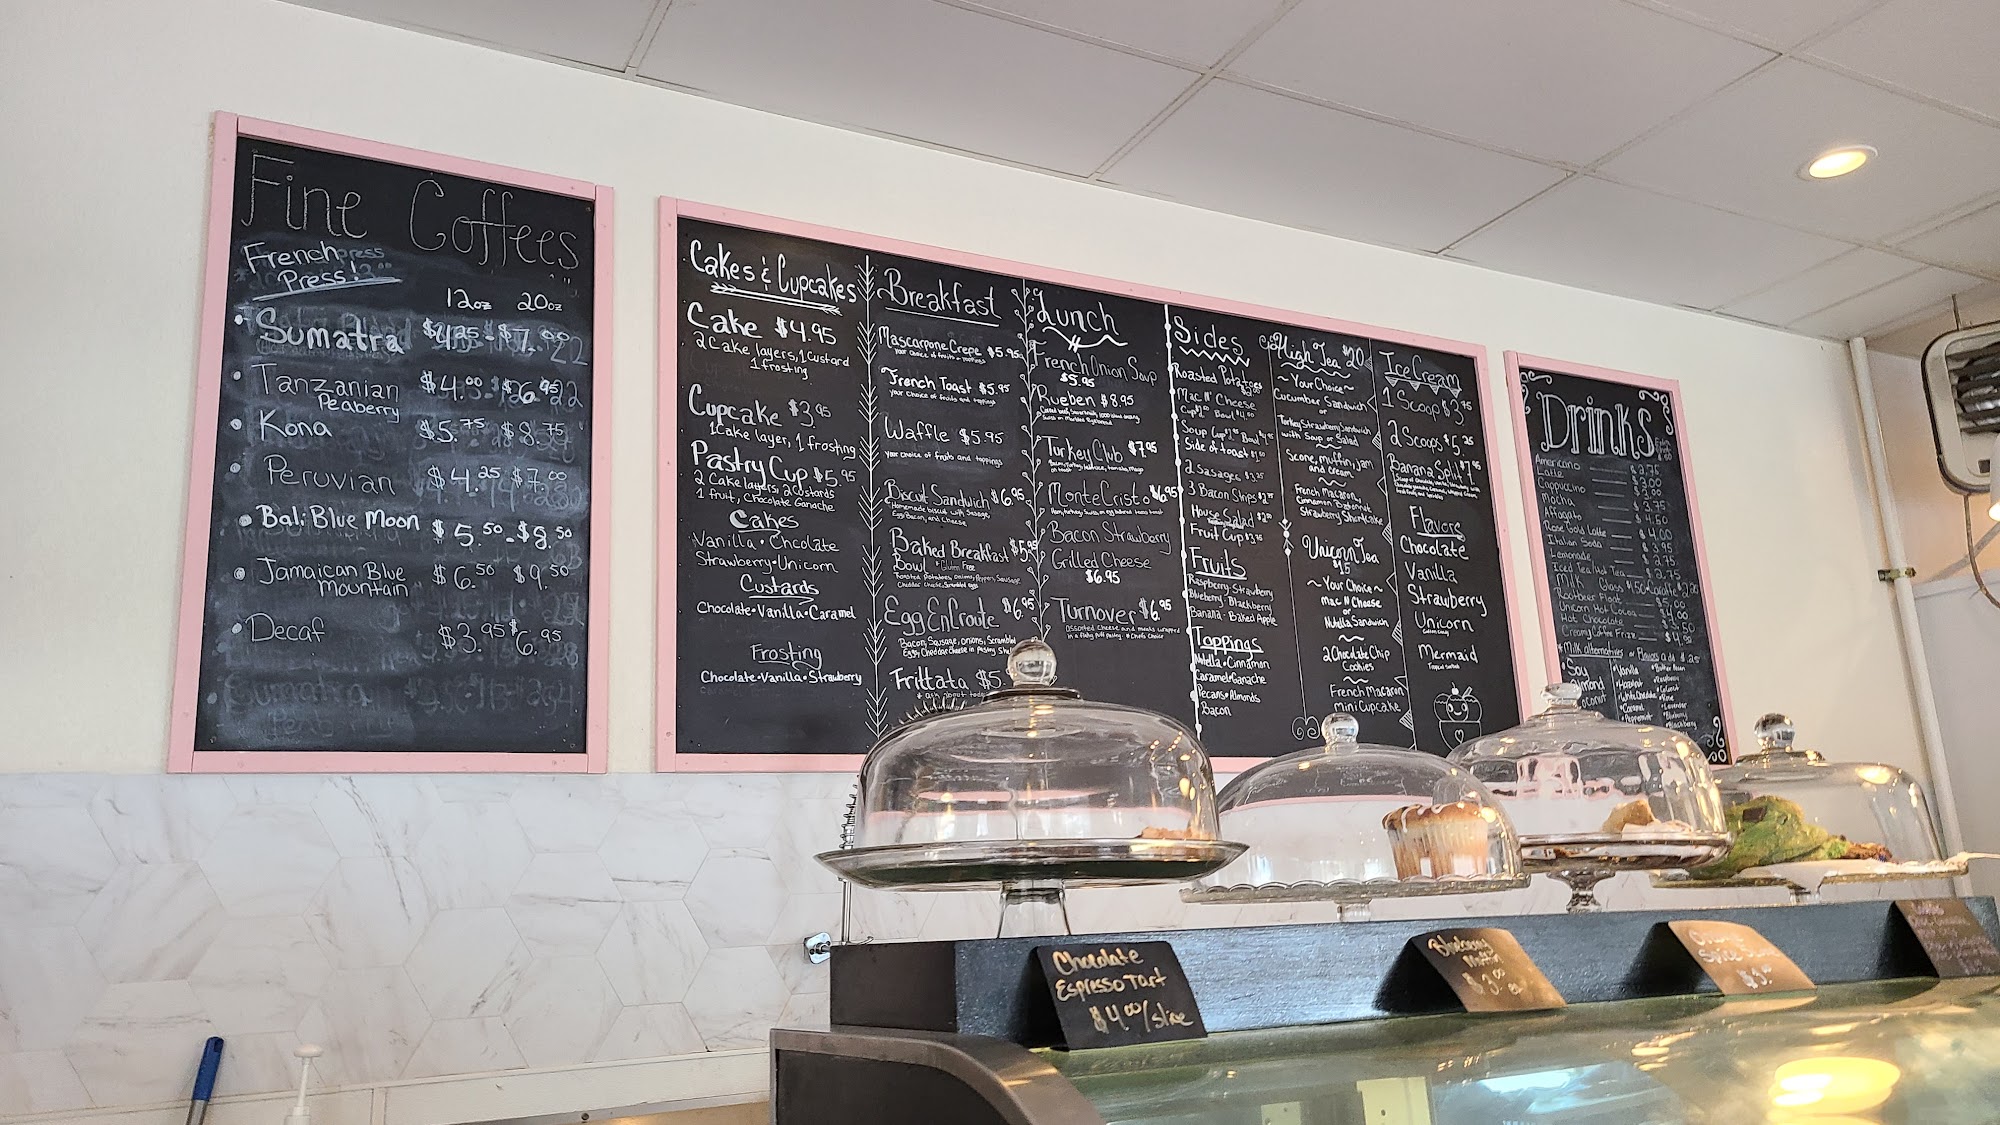 Fine Coffees
French
Press!
12oz 20oz
Sumatra
Tanzanian $4.00 $6.95
Peaberry
Kona $5.75 $8.75
Peruvian $4.25 $7.00
Bali Blue Moon $5.50 - $8.50
Jamaican Blue $6.50 $9.50
Mountain
Decaf $3.95 $6.95
Cakes & Cupcakes
Cake $4.95
2 Cake layers, 1 Custard
1 frosting
Cupcake $3.95
1 Cake layer, 1 frosting
Pastry Cup $5.95
2 Cake layers, 2 Custards
1 fruit, Chocolate Ganache
Cakes
Vanilla • Chcolate
Strawberry • Unicorn
Custards
Chocolate • Vanilla • Caramel
Frosting
Chocolate • Vanilla • Strawberry
Breakfast
Mascarpone Crepe $5.95
your choice of fruits & toppings
French Toast $5.95
your choice of fruits and toppings
Waffle $5.95
your choice of fruits and toppings
Biscuit Sandwich $6.95
Homemade biscuit with Sausage,
Egg, Bacon, and Cheese
Baked Breakfast $5.95
Bowl Gluten Free
Roasted Potatoes, onions, Peppers, Sausage
Cheddar Cheese, Scrambled eggs
Egg EnRoute $6.95
Bacon, Sausage, onions, Scrambled
Eggs, Cheddar Cheese in pastry
Frittata $5.
Lunch
French Onion Soup
$5.95
Rueben $8.95
Turkey Club $7.95
Monte Cristo $6.95
Bacon Strawberry
Grilled Cheese
$6.95
Turnover $6.95
assorted cheese and meats wrapped
in a flaky puff pastry. Chefs Choice
Sides
Roasted Potatoes
Mac N' Cheese
Soup
Side of toast
2 Sasages $3.25
3 Bacon Strips
House Salad
Fruit Cup
Fruits
Raspberry • Strawberry
Blueberry • Blackberry
Banana • Baked Apple
Toppings
Nutella • Cinnamon
Caramel • Ganache
Pecans • Almonds
Bacon
High Tea $20
~ Your Choice ~
Cucumber Sandwich
or
Turkey Strawberry Sandwich
with Soup or Salad
Scone, muffin, jam
and cream
French Macaron,
Strawberry Shortcake
Unicorn Tea
~ Your Choice ~
Mac N Cheese
or
Nutella Sandwich
2 Chocolate Chip
Cookies
French Macaron
Mini Cupcake
Ice Cream
1 Scoop $3.75
2 Scoops $5.25
Banana Split
Flavors
Chocolate
Vanilla
Strawberry
Unicorn
Mermaid
Drinks
Americano $2.75
Latte
Cappuccino
Mocha $3.75
Affogato $4.50
Rose Gold Latte $4.00
Italian Soda $3.95
Lemonade
Iced Tea Hot Tea $2.75
Milk
Rootbeer Float
Unicorn Hot Cocoa
Hot Chocolate
Milk alternatives or Flavors add
Soy
Almond
Vanilla
Hazelnut
Caramel
Peppermint
Coconut
Lavender
Blueberry
Blackberry
Chocolate
Espresso Tart
$4.00/slice
Blueberry
Muffin
$3.00